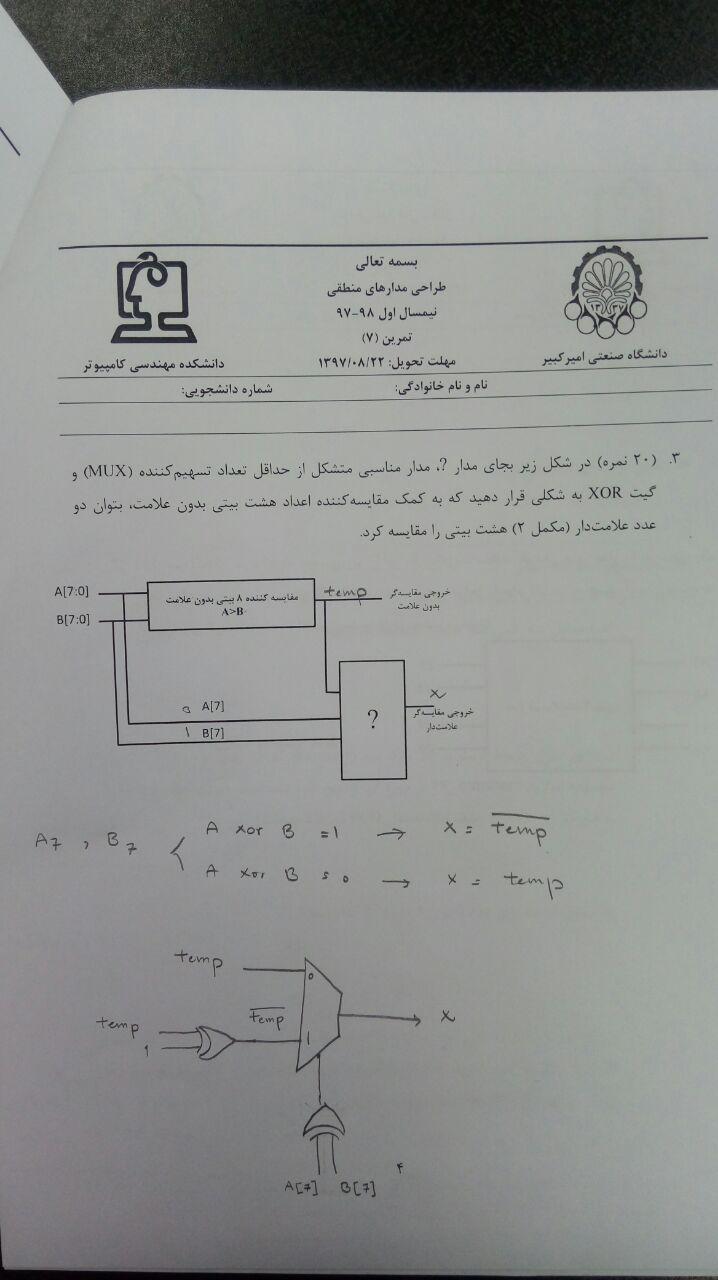 بسمه تعالی
طراحی مدارهای منطقی
نیمسال اول ۹۸-۹۷
تمرین (۷)
مهلت تحویل: ۱۳۹۷/۰۸/۲۲
۱۳ ۳۷
دانشگاه صنعتی امیرکبیر
دانشکده مهندسی کامپیوتر
نام و نام خانوادگی:
شماره دانشجویی:
۳. (۲۰ نمره) در شکل زیر بجای مدار ?، مدار مناسبی متشکل از حداقل تعداد تسهیم‌کننده (MUX) و
گیت XOR به شکلی قرار دهید که به کمک مقایسه‌کننده اعداد هشت بیتی بدون علامت، بتوان دو
عدد علامت‌دار (مکمل ۲) هشت بیتی را مقایسه کرد.
A[7:0]
B[7:0]
مقایسه کننده ۸ بیتی بدون علامت
A>B
temp
خروجی مقایسه‌گر
بدون علامت
0 A[7]
1 B[7]
?
x
خروجی مقایسه‌گر
علامت‌دار
A7 , B7
A xor B = 1 → x = \overline{temp}
A xor B = 0 → x = temp
temp
0
temp
1
\overline{temp}
1
x
A[7] B[7]
۴